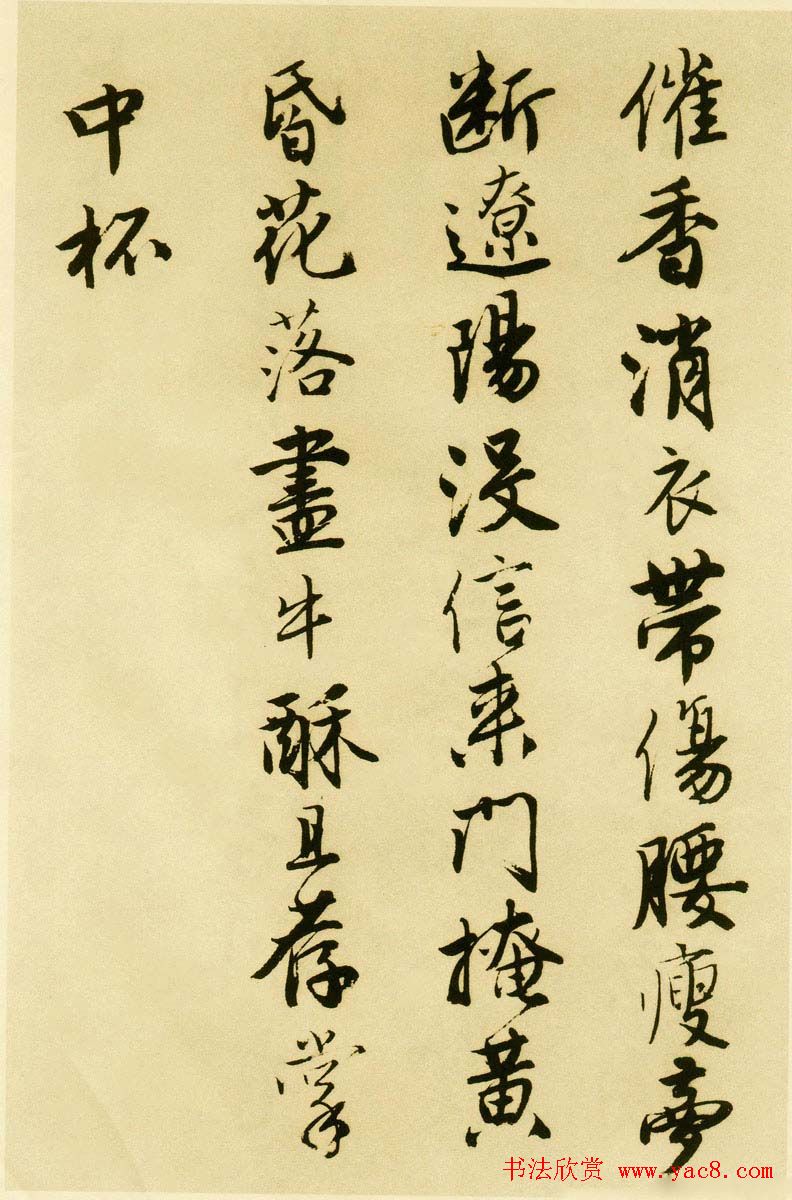 催香消衣帶傷腰瘦夢
断遼陽没信来門掩黄
昏花落盡牛酥且荐掌
中杯
书法欣赏 www.yac8.com